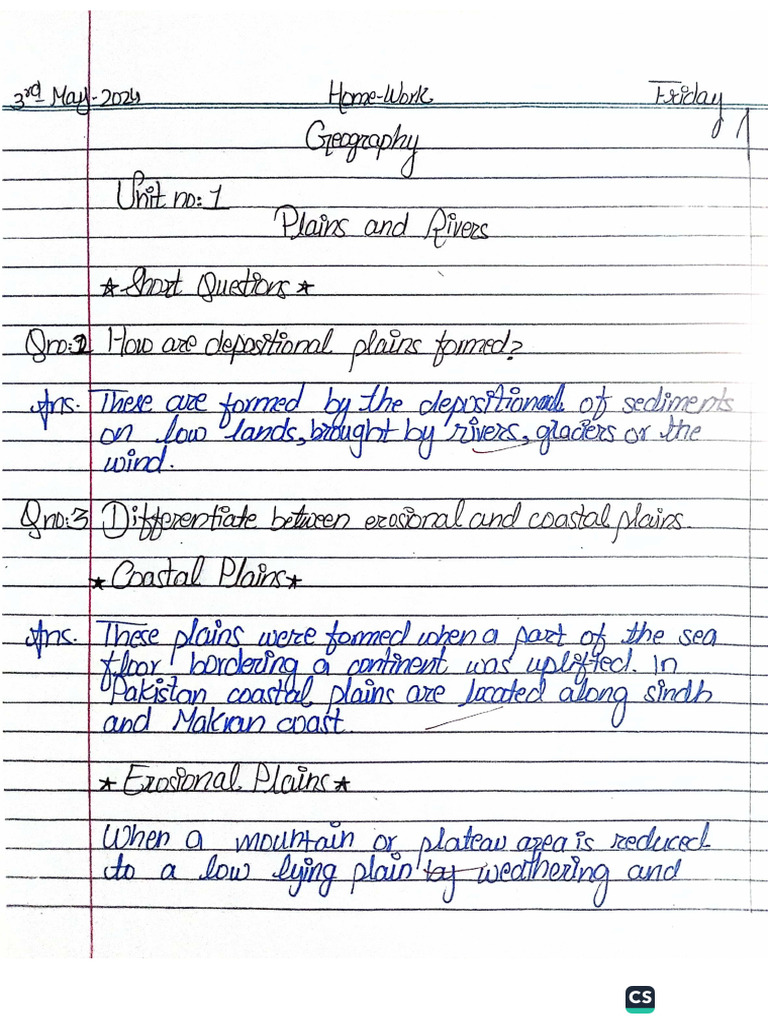 3rd May-2024 Home-Work Friday
Geography
Unit no: 1
Plains and Rivers
★ Short Questions ★
Qno:2 How are depositional plains formed?
Ans. These are formed by the depositional of sediments
on low lands, brought by rivers, glaciers or the
wind.
Qno:3 Differentiate between erosional and coastal plains.
★ Coastal Plains ★
Ans. These plains were formed when a part of the sea
floor bordering a continent was uplifted. In
Pakistan coastal plains are located along sindh
and Makran coast.
★ Erosional Plains ★
When a mountain or plateau area is reduced
to a low lying plain by weathering and
CS